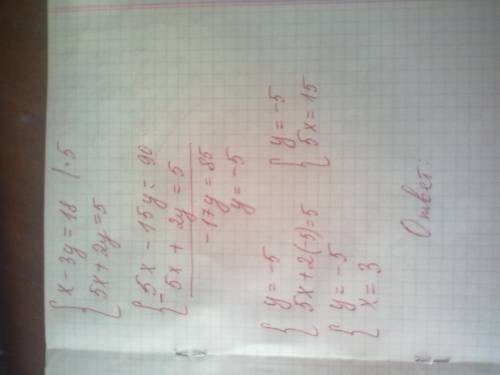 { x - 3y = 18 | · 5
{ 5x + 2y = 5
{ 5x - 15y = 90
{ - 5x + 2y = 5
-17y = 85
y = -5
{ y = -5
{ 5x + 2(-5) = 5
{ y = -5
{ 5x = 15
{ y = -5
{ x = 3
Ответ: